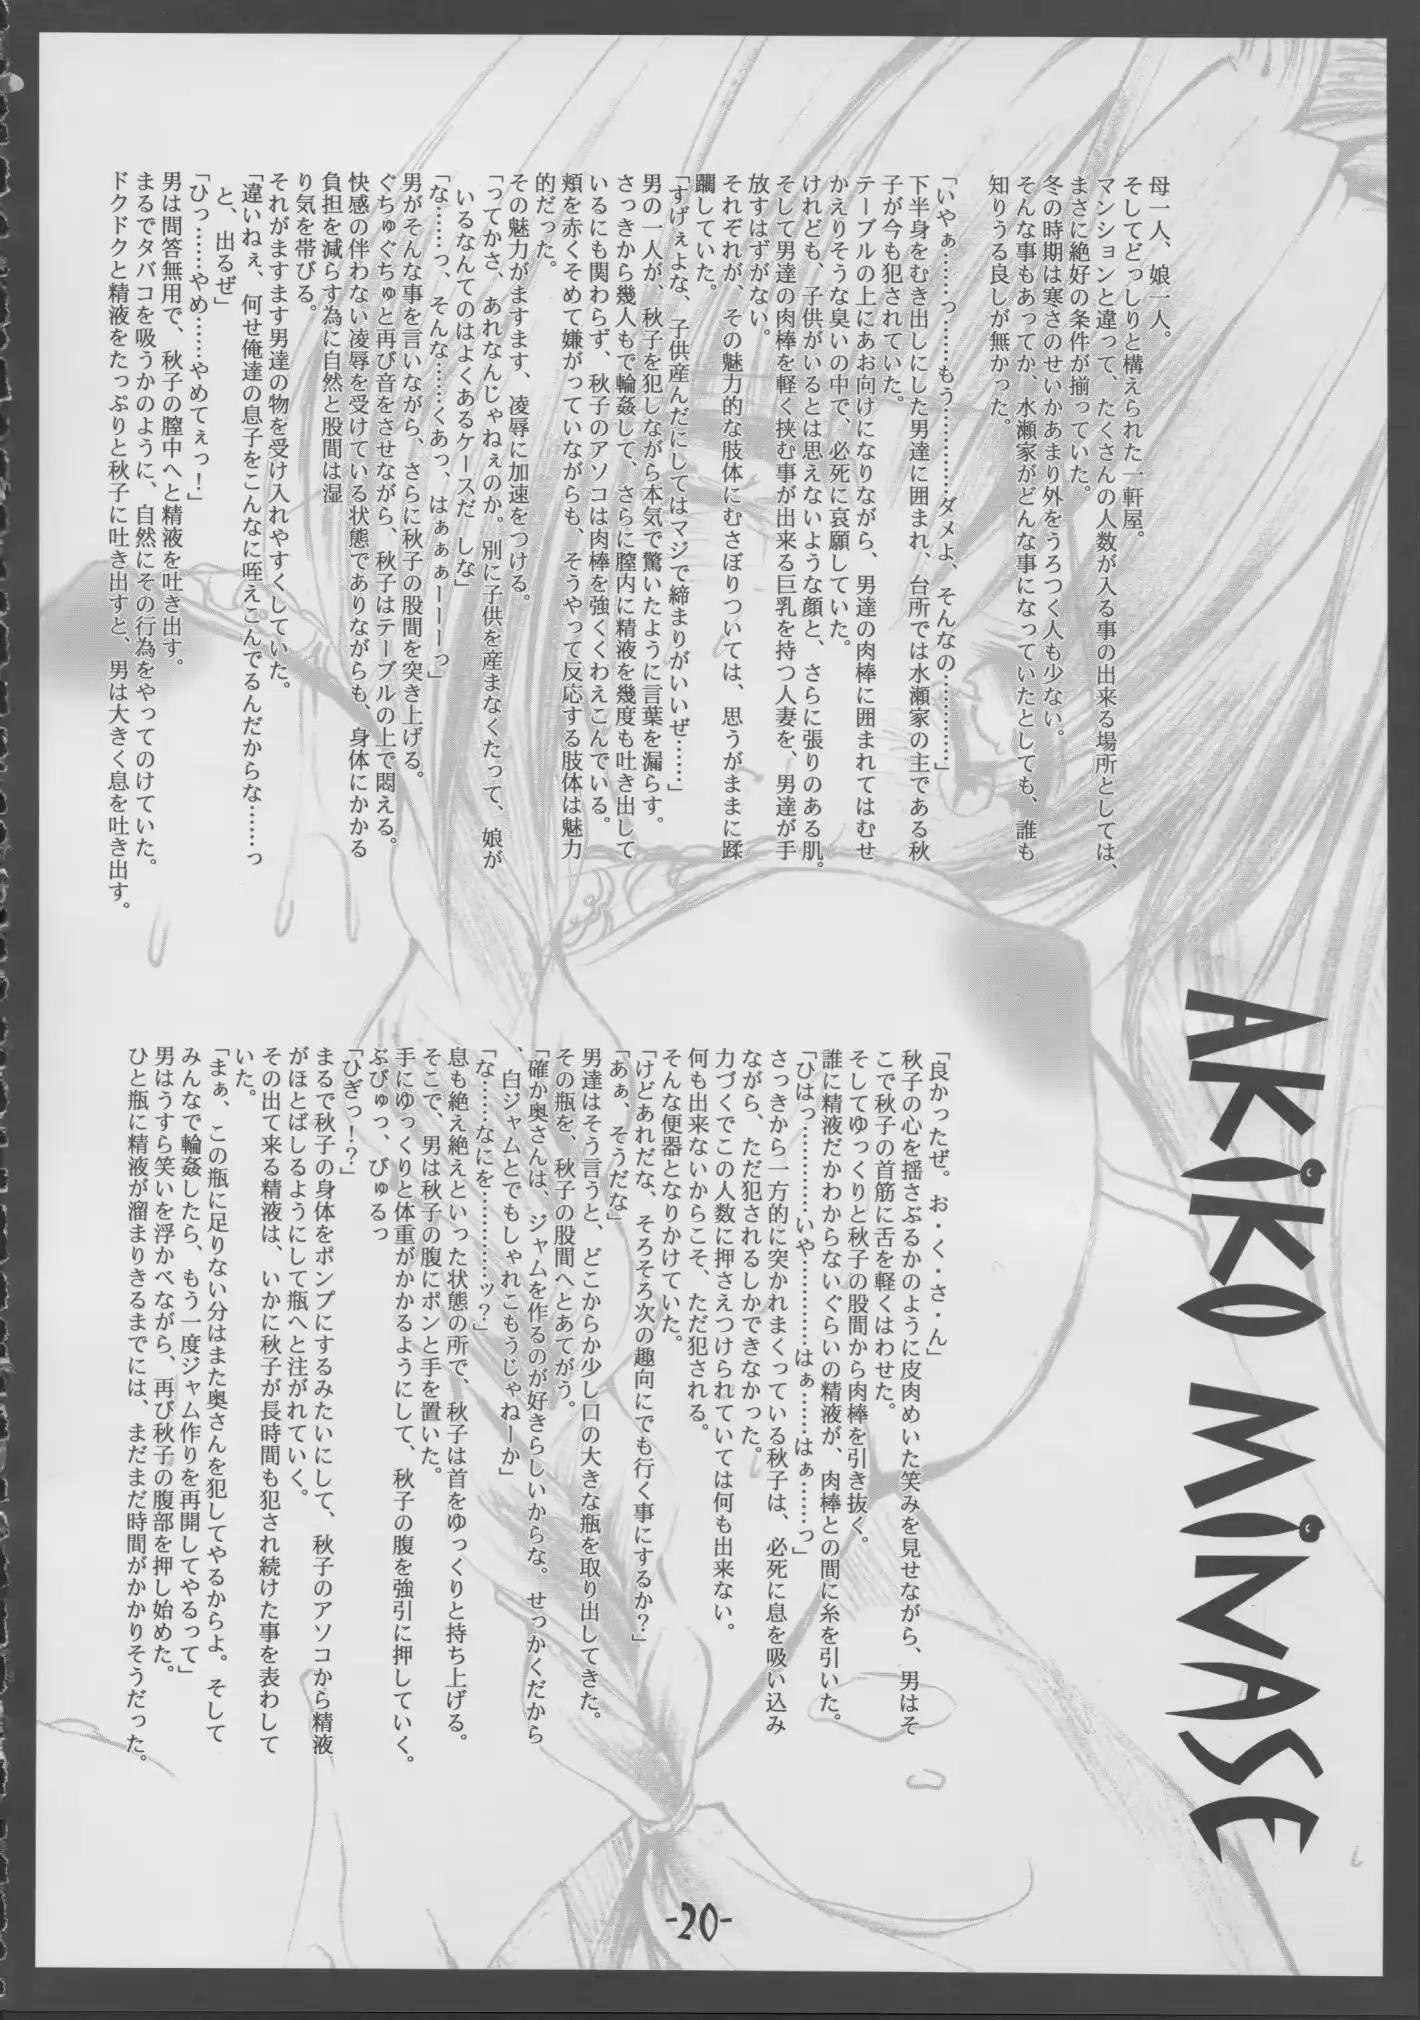 AKIKO MINASE
母一人、娘一人。
そしてどっしりと構えられた一軒屋。
マンションと違って、たくさんの人数が入る事の出来る場所としては、
まさに絶好の条件が揃っていた。
冬の時期は寒さのせいかあまり外をうろつく人も少ない。
そんな事もあってか、水瀬家がどんな事になっていたとしても、誰も
知りうる良しが無かった。
「いやぁ………っ………もう…………ダメよ、そんなの…………」
下半身をむき出しにした男達に囲まれ、台所では水瀬家の主である秋
子が今も犯されていた。
テーブルの上にあお向けになりながら、男達の肉棒に囲まれてはむせ
かえりそうな臭いの中で、必死に哀願していた。
けれども、子供がいるとは思えないような顔と、さらに張りのある肌。
そして男達の肉棒を軽く挟む事が出来る巨乳を持つ人妻を、男達が手
放すはずがない。
それぞれが、その魅力的な肢体にむさぼりついては、思うがままに蹂
躙していた。
「すげぇよな、子供産んだにしてはマジで締まりがいいぜ……」
男の一人が、秋子を犯しながら本気で驚いたように言葉を漏らす。
さっきから幾人もで輪姦して、さらに膣内に精液を幾度も吐き出して
いるにも関わらず、秋子のアソコは肉棒を強くくわえこんでいる。
頬を赤くそめて嫌がっていながらも、そうやって反応する肢体は魅力
的だった。
その魅力がますます、凌辱に加速をつける。
「ってかさ、あれなんじゃねぇのか。別に子供を産まなくたって、娘が
いるなんてのはよくあるケースだ しな」
「な……っ、そんな……くあっ、はぁぁぁーーーっ」
男がそんな事を言いながら、さらに秋子の股間を突き上げる。
ぐちゅぐちゅと再び音をさせながら、秋子はテーブルの上で悶える。
快感の伴わない凌辱を受けている状態でありながらも、身体にかかる
負担を減らす為に自然と股間は湿
り気を帯びる。
それがますます男達の物を受け入れやすくしていた。
「違いねぇ、何せ俺達の息子をこんなに咥えこんでるんだからな……っ
と、出るぜ」
「ひっ……やめ……やめてぇっ！」
男は問答無用で、秋子の膣中へと精液を吐き出す。
まるでタバコを吸うかのように、自然にその行為をやってのけていた。
ドクドクと精液をたっぷりと秋子に吐き出すと、男は大きく息を吐き出す。
「良かったぜ。お・く・さ・ん」
秋子の心を揺さぶるかのように皮肉めいた笑みを見せながら、男はそ
こで秋子の首筋に舌を軽くはわせた。
そしてゆっくりと秋子の股間から肉棒を引き抜く。
誰に精液だかわからないぐらいの精液が、肉棒との間に糸を引いた。
「ひはっ…………いや…………はぁ……はぁ……っ」
さっきから一方的に突かれまくっている秋子は、必死に息を吸い込み
ながら、ただ犯されるしかできなかった。
力づくでこの人数に押さえつけられていては何も出来ない。
何も出来ないからこそ、ただ犯される。
そんな便器となりかけていた。
「けどあれだな、そろそろ次の趣向にでも行く事にするか？」
「あぁ、そうだな」
男達はそう言うと、どこからか少し口の大きな瓶を取り出してきた。
その瓶を、秋子の股間へとあてがう。
「確か奥さんは、ジャムを作るのが好きらしいからな。せっかくだから
、白ジャムとでもしゃれこもうじゃねーか」
「な……なにを…………ッ？」
息も絶え絶えといった状態の所で、秋子は首をゆっくりと持ち上げる。
そこで、男は秋子の腹にポンと手を置いた。
手にゆっくりと体重がかかるようにして、秋子の腹を強引に押していく。
ぶびゅっ、びゅるっ
「ひぎっ！？」
まるで秋子の身体をポンプにするみたいにして、秋子のアソコから精液
がほとばしるようにして瓶へと注がれていく。
その出て来る精液は、いかに秋子が長時間も犯され続けた事を表わして
いた。
「まぁ、この瓶に足りない分はまた奥さんを犯してやるからよ。そして
みんなで輪姦したら、もう一度ジャム作りを再開してやるって」
男はうすら笑いを浮かべながら、再び秋子の腹部を押し始めた。
ひと瓶に精液が溜まりきるまでには、まだまだ時間がかかりそうだった。
-20-